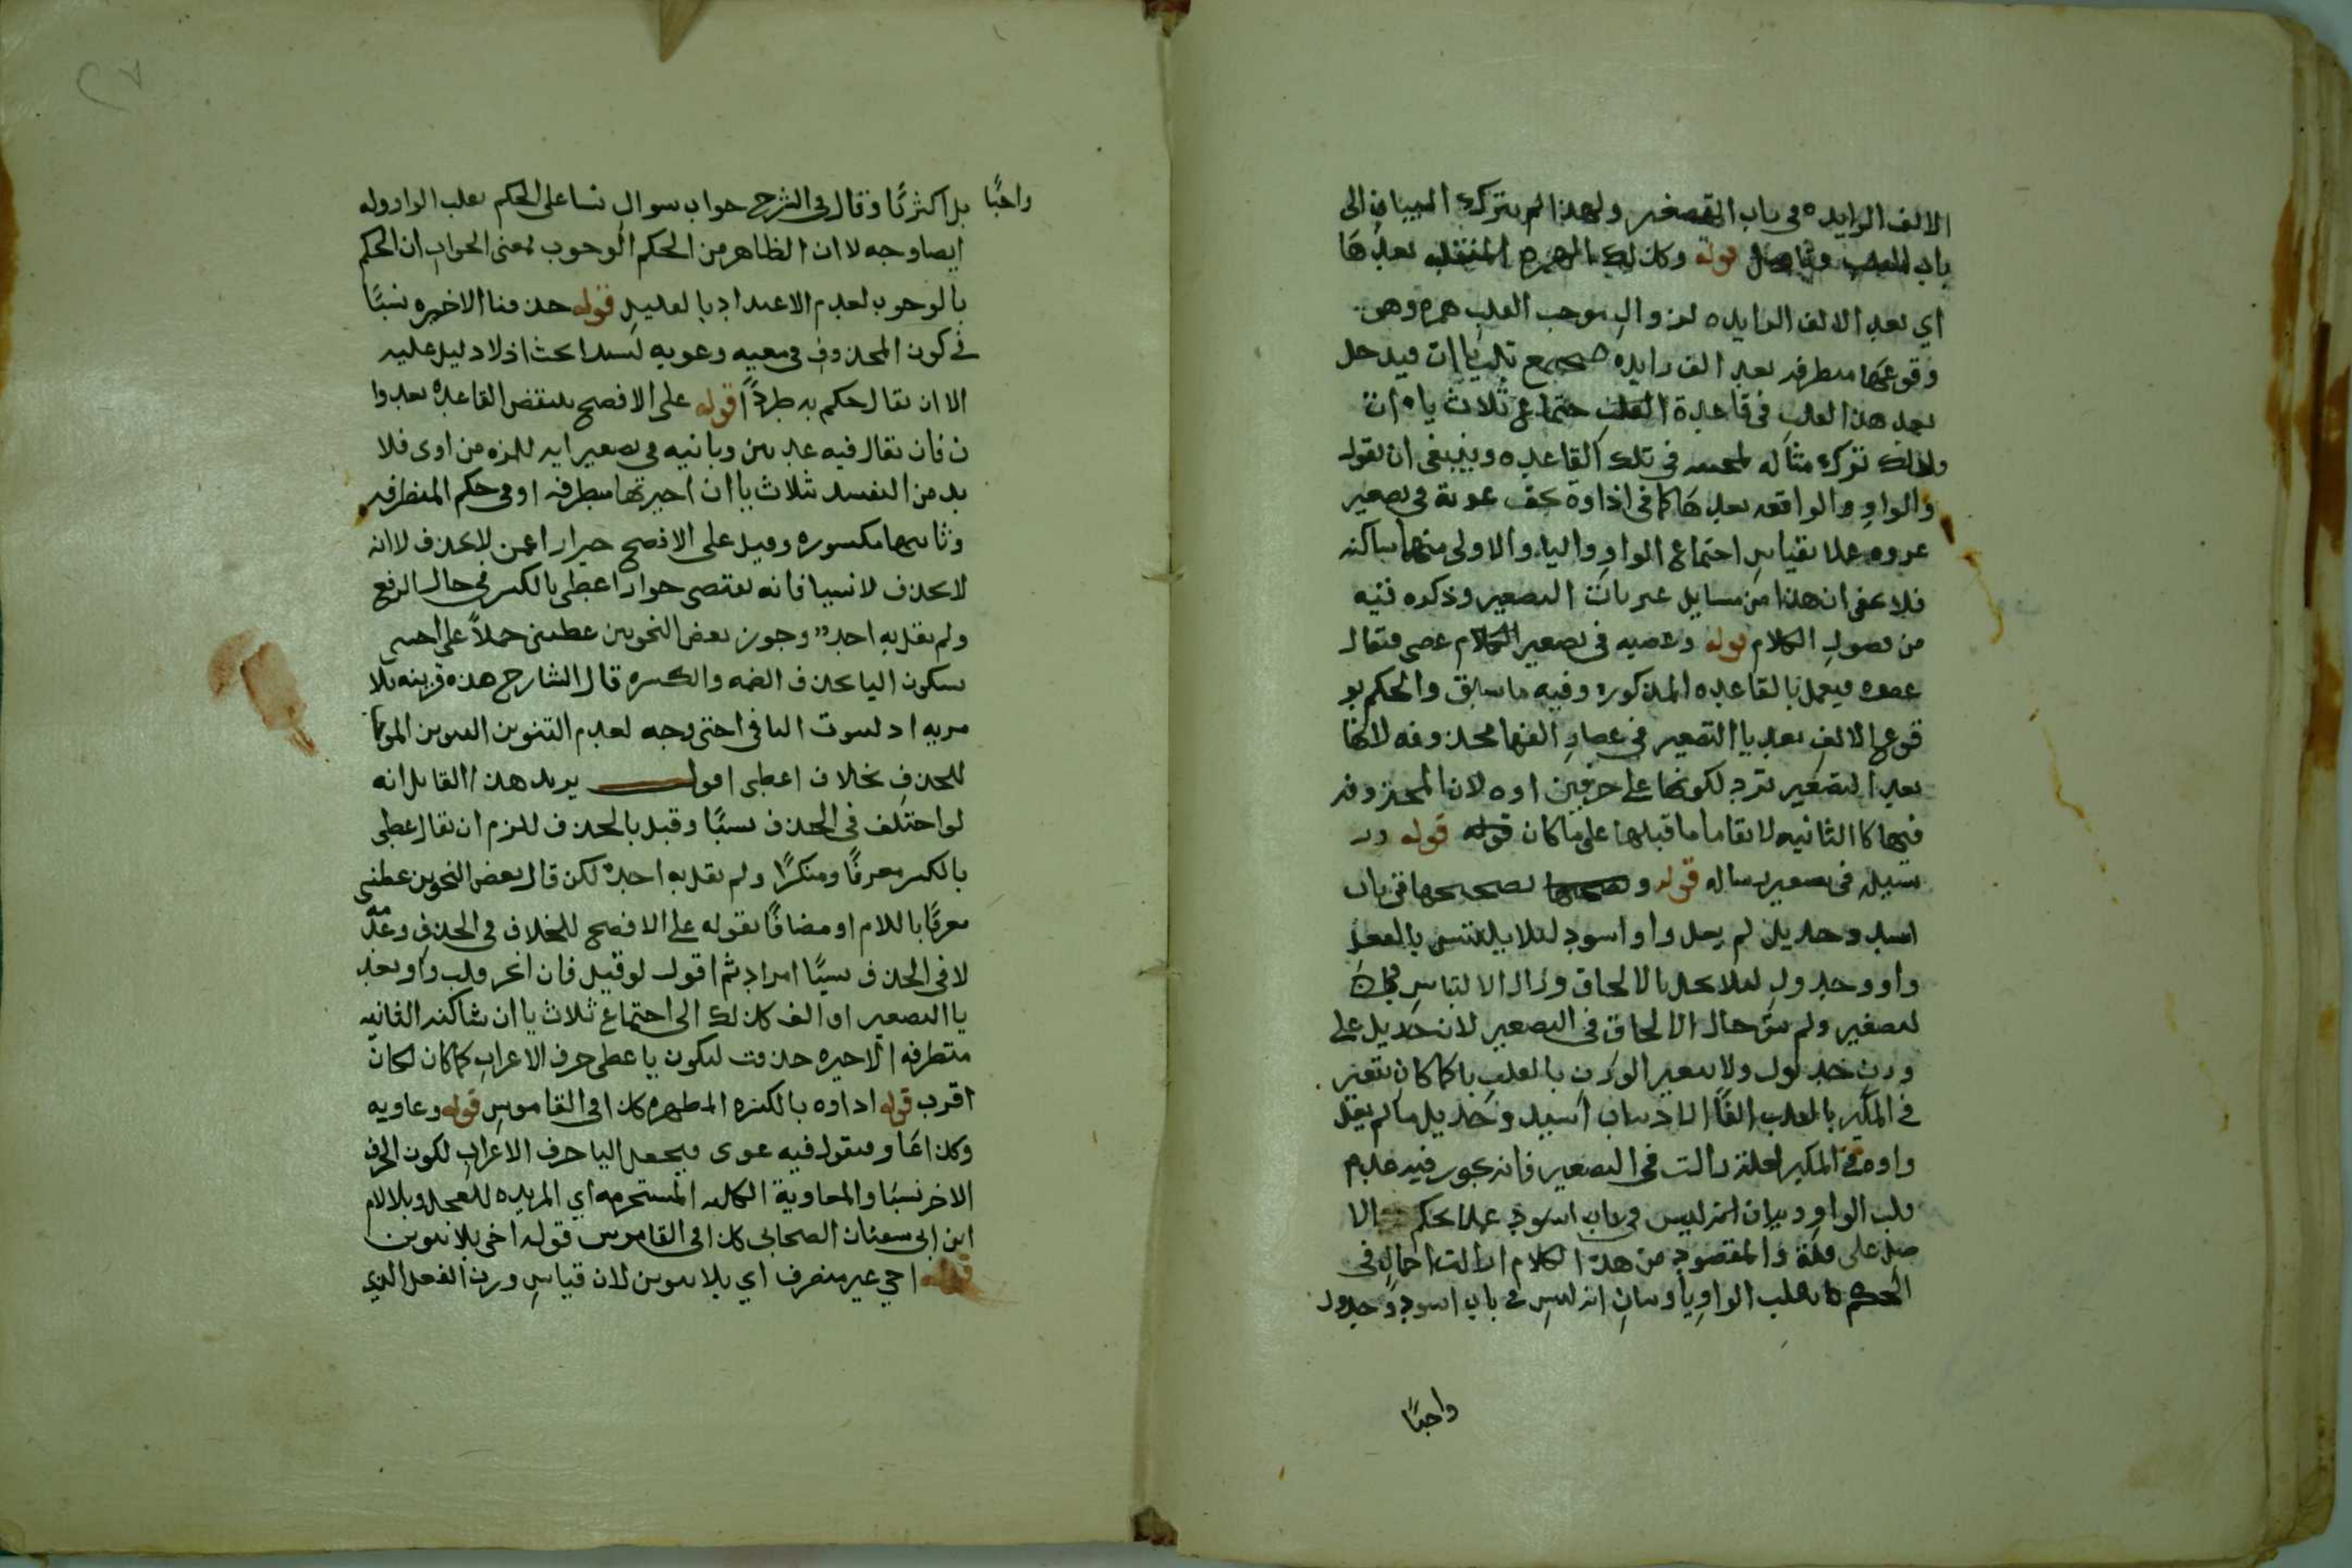 الالف الزايده في باب التصغير ولهذا لم يترك البيان الى
باب القلب قوله وكذلك الهمزة المنقلبه بعدها
اي بعد الالف الزايده لزوال موجب القلب همزه وهو
وقوعها متطرفه بعد الف زايده فيجتمع ثلث ياات فيدخل
بعد هذا القلب في قاعدة اجتماع ثلاث ياءات
ولذلك ترك مثاله في تلك القاعده وينبغي ان يقول
والواو والواقعه بعدها كما في اداوة عرية في تصغير
عروه عملا بقياس اجتماع الواو والياء والاولى منهما ساكنه
فلا يخفى ان هذا من مسايل غير باب التصغير وذكره فيه
من فضول الكلام قوله وعصيه في تصغير الكلام عصى فيقال
عصوه فيعمل بالقاعده المذكوره وفيه ما سبق والحكم بو
قوع الالف بعد يا التصغير في عصا و الفها محذوفه لانها
بعد التصغير ترد لكونها على حرفين اوه لان المحذوفه
فيها كالثانيه لا بقا ما قبلها على ما كان قوله قوله ور
سيله في تصغير رساله قوله و تصحيحها في باب
اسيد وجديل لم يعل واو اسود لئلا يلتبس بالفعل
واو وجدول لئلا يخل بالالحاق وزال الالتباس
لتصغير ولم يبق حال الالحاق في التصغير لان جديل على
وزن جدول ولا يتغير الوزن بالقلب يا كما كان يتغير
في المكبر بالقلب الفا اسيد وجديل ما لم يعل
واوه في المكبر لعلة زالت في التصغير فانه يجوز فيه عدم
قلب الواو وبيان انه ليس في باب اسود عملا بحكم الا
صل على قلة والمقصود من هذا الكلام في
الحكم بقلب الواو يا وبيان انه ليس في باب اسود وجدول
واجبًا
واجبًا
بل اكثريًا وقال في الشرح جواب سوال نشا على الحكم بقلب الواو وله
ايضا وجه لان الظاهر من الحكم الوجوب فمعنى الجواب ان الحكم
بالوجوب لعدم الاعتداد بالقليل قوله حذفنا الاخيره نسيًا
في كون المحذوف في معيه وغويه نسيا بحث اذ لا دليل عليه
الا ان يقال حكم به طردًا قوله على الافصح ينتقض القاعدة بعدوا
ن فان يقال فيه عديين وبانيه في تصغير ايه للمره من اوى فلا
بد من التقييد ثلاث ياات اخيرتها متطرفه او في حكم المتطرفه
وثانيها مكسوره وقيل على الافصح احترازا عمن لا يحذف لا انه
لا يحذف لا نسيا فانه يقتضي جواز اعطى بالكسر في حال الرفع
ولم يقل به احد وجوز بعض النحويين عطيي حملاً على احيي
بسكون اليا بحذف الضمه والكسره قال الشارح هذه فرينه بلا
مريه اذ لثبوت اليا في احيي وجه لعدم التنوين
للحذف بخلاف اعطى اقول يريد هذا القايل انه
لو اختلف في الحذف نسيًا وقيل بالحذف للزم ان يقال عطي
بالكسر معرفًا ومنكرًا ولم يقل به احد لكن قال بعض النحويين عطيي
معرفًا باللام او مضافًا بقوله على الافصح للخلاف في الحذف وعدمه
لا في الحذف نسيًا ثم اقول لو قيل فان اخر قلب واو بعد
يا التصغير او الف كذلك الى اجتماع ثلاث ياات ساكنه الثانيه
متطرفه الاخيره حذفت ليكون يا عطى حرف الاعراب كما كان لكان
اقرب قوله اداوه بالكسره المطهره كذا في القاموس قوله وغاويه
وكذا غاو فيقول فيه غوى فيجعل اليا حرف الاعراب لكون الحرف
الاخر نسيا والمعاوية الكلبه المستحرمه اي المريده للفحل وبلا لام
ابن ابي سفيان الصحابي كذا في القاموس قوله اخي بلا تنوين
قوله احي غير منصرف اي بلا تنوين لان قياس وزن الفعل الذي